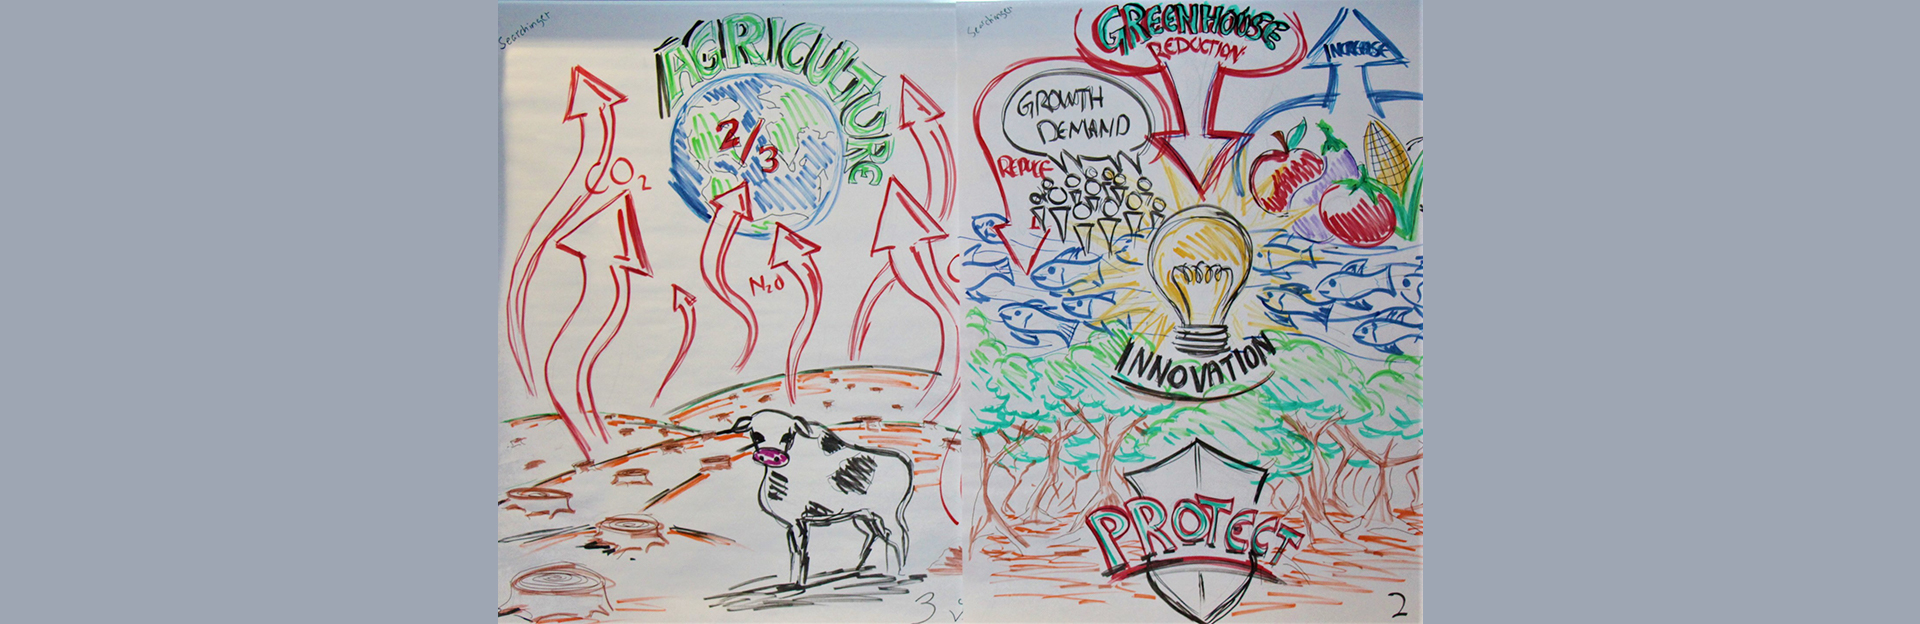 Searchinger
AGRICULTURE
2/3
CO2
N2O
3
Searchinger
GREENHOUSE
REDUCTION
INCREASE
GROWTH
DEMAND
REDUCE
INNOVATION
PROTECT
2